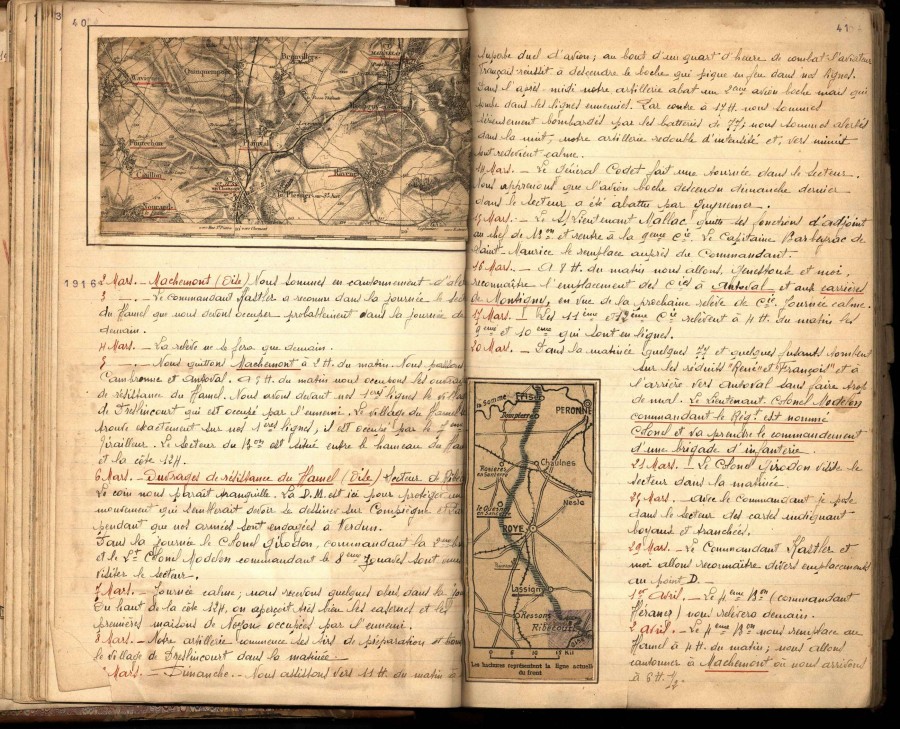 40
1916
2 Mars. - Machemont (Oise) Nous sommes en cantonnement d'
3 — . - Le Commandant Kastler a reconnu dans la journée le
du Hamel que nous devons occuper probablement dans la journée de
demain.
4 Mars. - La relève ne se fera que demain.
5 — . - Nous quittons Machemont à 2 H. du matin. Nous passons
Cambronne et Antoval. A 5 H. du matin nous occupons les ouvrages
de résistance du Hamel. Nous avons devant nos 1ères lignes le village
de Dreslincourt qui est occupé par l'ennemi. Le village du Hamel
trouve exactement sur nos 1ères lignes, il est occupé par le
Tirailleur. Le secteur du Bon est situé entre le hameau du
et la côte 124.
6 Mars. - Ouvrages de résistance du Hamel (Oise) Secteur de
Le coin nous parait tranquille. La D.M. est ici pour protéger un
mouvement qui semblerait devoir se dessiner sur Compiègne et
pendant que nos armées sont engagées à Verdun.
Dans la journée le Colonel Girodon, commandant la 2ème
et le Lt Colonel Modelon commandant le 8ème Zouaves sont venus
visiter le secteur.
7 Mars. - Journée calme; nous recevons quelques obus dans la
Du haut de la côte 124, on aperçoit très bien les casernes et les
premières maisons de Noyon occupées par l'ennemi.
8 Mars. - Notre artillerie commence ses tirs de préparation et
le village de Dreslincourt dans la matinée.
Mars. - Dimanche. - Nous assistons vers 11 H. du matin à
41
superbe duel d'avion; au bout d'un quart d'heure de combat l'aviateur
français réussit à descendre le boche qui pique en feu dans nos lignes.
Dans l'après-midi notre artillerie abat un 2ème avion boche mais qui
tombe dans les lignes ennemies. Par contre à 17 H. nous sommes
sérieusement bombardés par les batteries de 77; nous sommes alertés
dans la nuit, notre artillerie redouble d'intensité et, vers minuit
tout redevient calme.
14 Mars. - Le Général Codet fait une tournée dans le secteur.
Nous apprenons que l'avion boche descendu dimanche dernier
dans le secteur a été abattu par Guynemer.
15 Mars. - Le S/Lieutenant Mallac quitte ses fonctions d'adjoint
au chef de Bon et rentre à la 9ème Cie. Le Capitaine Barbeyrac de
Saint-Maurice le remplace auprès du Commandant.
16 Mars. - A 8 H. du matin nous allons, et moi,
reconnaître l'emplacement des Cies à Antoval et aux carrières
de Montigny, en vue de la prochaine relève de Cie. Journée calme.
17 Mars. - Les 11ème et 12ème Cie relèvent à 4 H. du matin les
9ème et 10ème qui sont en lignes.
20 Mars. - Dans la matinée quelques 77 et quelques fusants tombent
sur les réduits "René" et "François" et à
l'arrière vers Antoval sans faire trop
de mal. Le Lieutenant Colonel Modelon
commandant le Régt est nommé
Colonel et va prendre le commandement
d'une brigade d'infanterie.
21 Mars. - Le Colonel Girodon visite le
secteur dans la matinée.
27 Mars. - Avec le Commandant je pose
dans le secteur des cartes indiquant
boyaux et tranchées.
29 Mars. - Le Commandant Kastler et
moi allons reconnaître divers emplacements
au point D. -
1er Avril. - Le 4ème Bon (Commandant
Héranez) nous relèvera demain.
2 Avril. - Le 4ème Bon nous remplace au
Hamel à 4 H. du matin; nous allons
cantonner à Machemont où nous arrivons
à 6 H. 1/2
la Somme
Frise
PERONNE
Dompierre
Rosières
en Santerre
Chaulnes
Nesle
le Quesnoy
en Santerre
ROYE
Lassigny
Ressons
Ribécourt
Les hachures représentent la ligne actuelle
du front